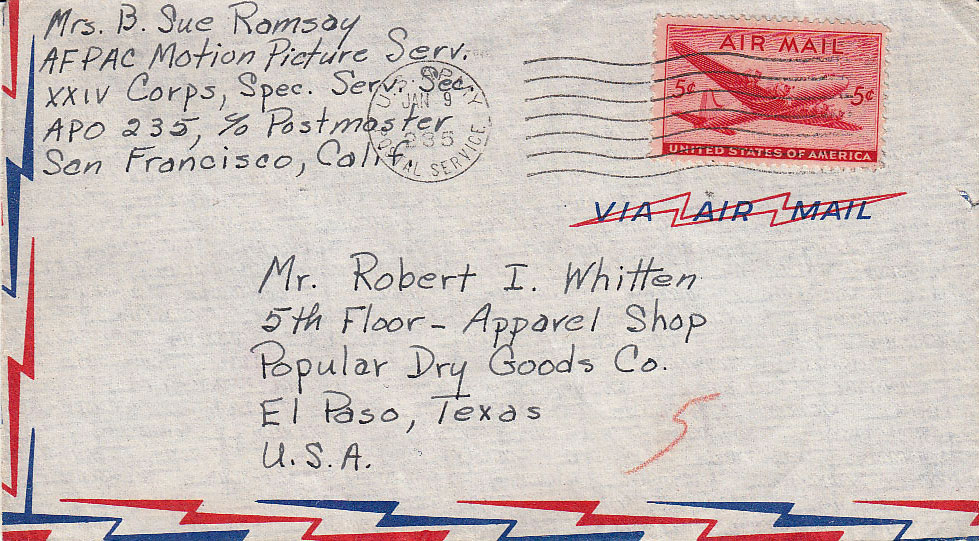 Mrs. B. Sue Ramsay
AFPAC Motion Picture Serv.
XXIV Corps, Spec. Serv. Sec.
APO 235, c/o Postmaster
San Francisco, Calif.
U.S. ARMY
JAN 9
235
POSTAL SERVICE
AIR MAIL
5¢ 5¢
UNITED STATES OF AMERICA
VIA AIR MAIL
Mr. Robert I. Whitten
5th Floor - Apparel Shop
Popular Dry Goods Co.
El Paso, Texas
U.S.A.
5